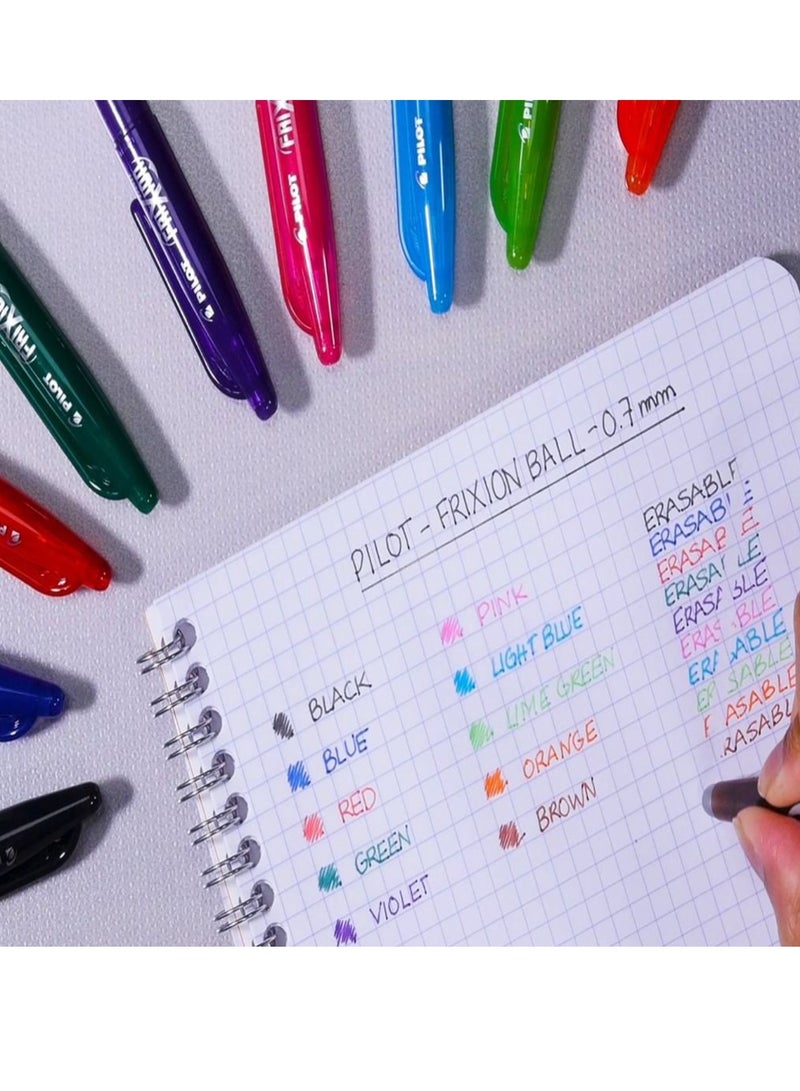 FRIXION
PILOT
FRIXION
PILOT
FRIX
PILOT
PILOT
PI
PILOT - FRIXION BALL - 0.7 mm
BLACK
BLUE
RED
GREEN
VIOLET
PINK
LIGHT BLUE
LIME GREEN
ORANGE
BROWN
ERASABLE
ERASAB E
ERASAB E
ERASA LE
ERASA BLE
ERAS BLE
ERA ABLE
ER SABLE
E ASABLE
RASABL